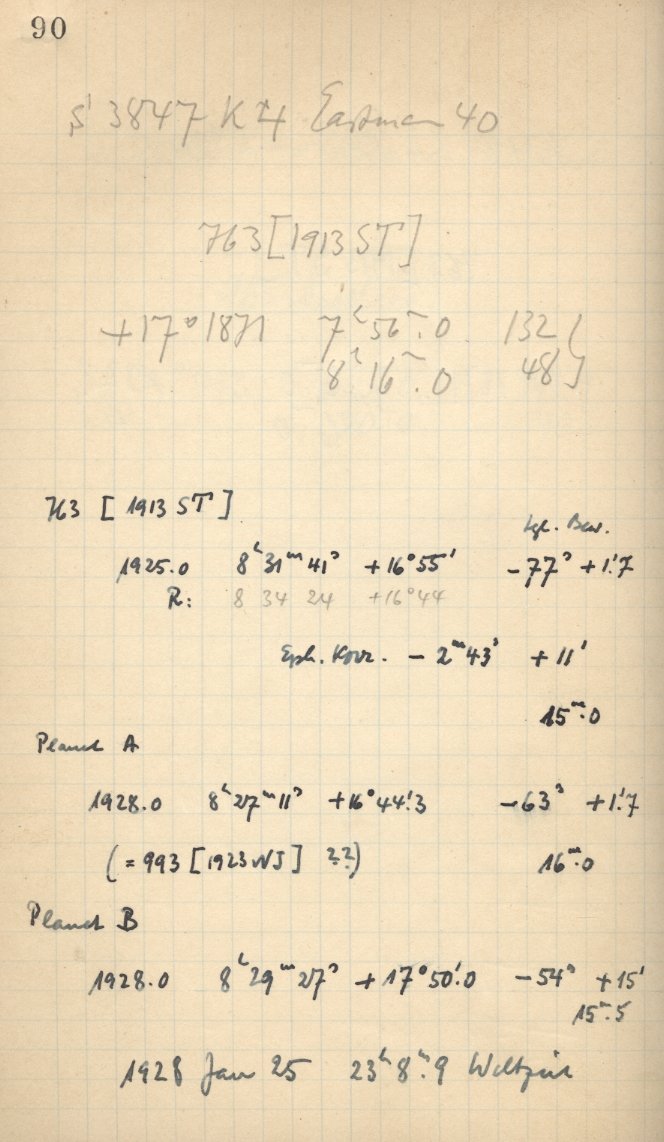 90
3847 K 4 Eastman 40
763 [1913 ST]
+17°1871 7ʰ56ᵐ.0 132
8ʰ16ᵐ.0 48
763 [1913 ST]
tgl. Bew.
1925.0 8ʰ31ᵐ41ˢ +16°55' -77ˢ +1'.7
R: 8 34 24 +16°44
Eph. Korr. - 2ᵐ43ˢ +11'
15ᵐ.0
Planet A
1928.0 8ʰ27ᵐ11ˢ +16°44'.3 -63ˢ +1'.7
(= 993 [1923 NJ] ??) 16ᵐ.0
Planet B
1928.0 8ʰ29ᵐ27ˢ +17°50'.0 -54ˢ +15'
15ᵐ.5
1928 Jan 25 23ʰ8ᵐ.9 Weltzeit